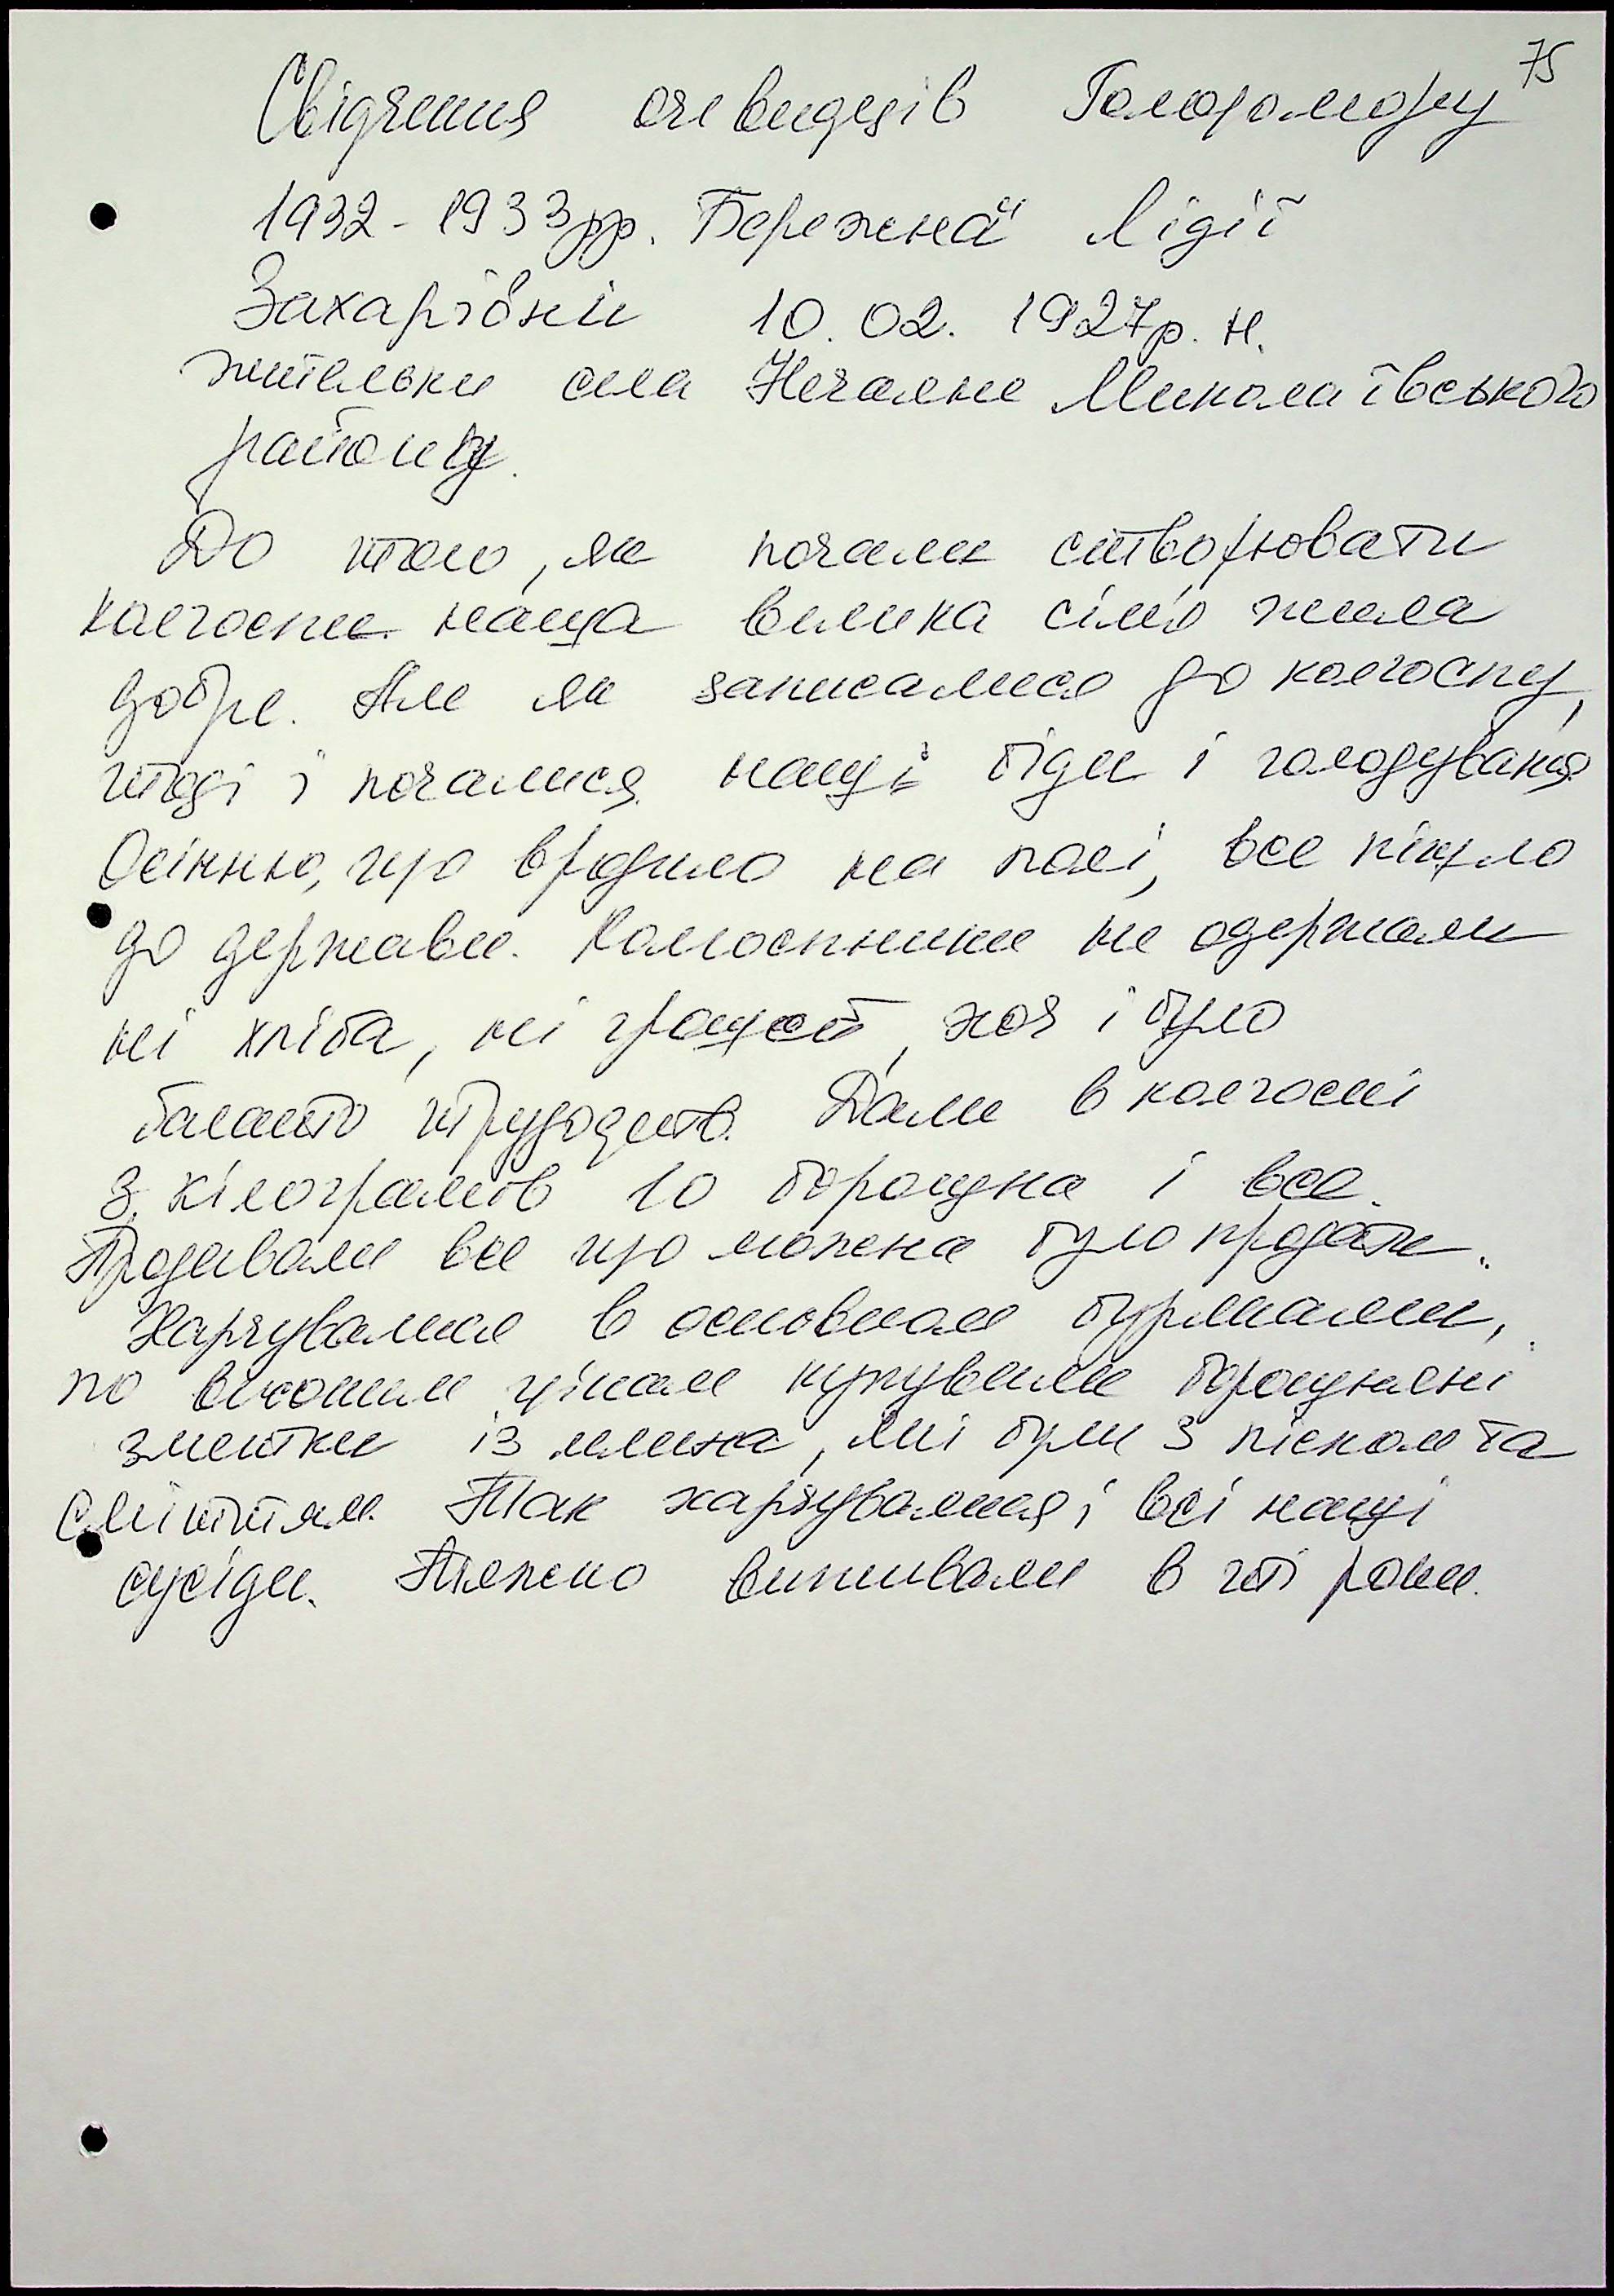 75
Свідчення очевидців Голодомору
1932-1933рр. Бережної Лідії
Захарівни 10.02.1927р.н.
жительки села Нечаяне Миколаївського
району.
До того, як почали створювати
колгоспи наша велика сім'я жила
добре. Але як записалися до колгоспу,
тоді і почалися наші біди і голодування
Осінню, що вродило на полі, все пішло
до держави. Колгоспники не одержали
ні хліба, ні грошей, хоч і було
багато трудоднів. Дали в колгоспі
з кілограмів 10 борошна і все.
Продавали все що можна було продати.
Харчувалися в основном бурянами,
по високим цінам купували борошняні
змітки із млина, які були з піском та
сміттям. Так харчувалися і всі наші
сусіди. Тяжко виживали в ті роки.